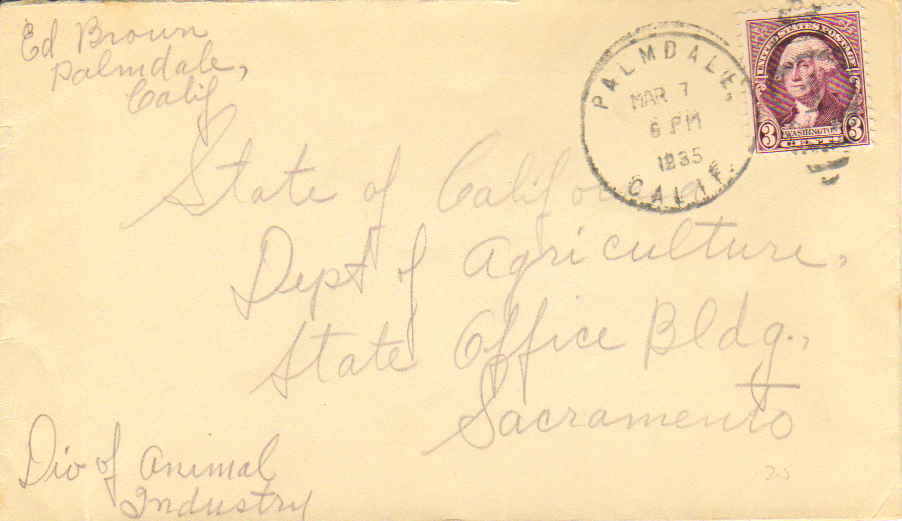 Ed Brown
Palmdale,
Calif
PALMDALE,
MAR 7
6 PM
1935
CALIF.
UNITED STATES POSTAGE
3 WASHINGTON 3
State of California
Dept of Agriculture,
State Office Bldg.,
Sacramento
Div of Animal
Industry